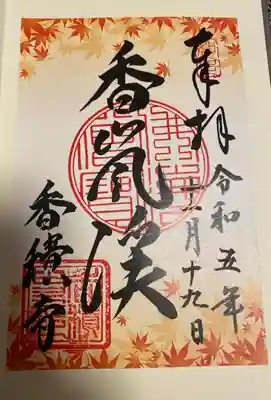 奉拝
令和五年
十一月十九日
香嵐渓
香積寺